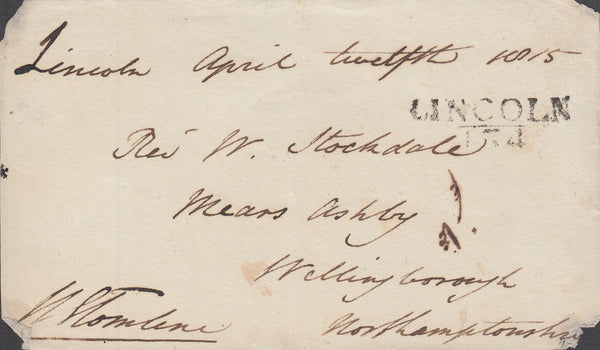 Lincoln April twelfth 1815
LINCOLN
134
Rev W. Stockdale
Mears Ashby
Wellingborough
Northamptonshire